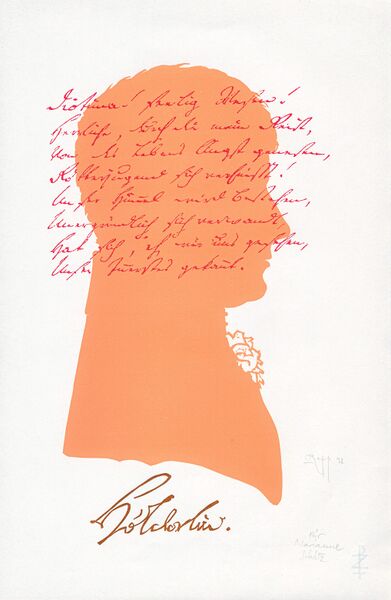 Diotima! seelig Wesen!
Herrliche, durch die mein Geist,
Von des Lebens Angst genesen,
Götterjugend sich verheißt!
Unser Himmel wird bestehen,
Unergründlich sich verwandt,
Hat sich, eh wir uns gesehen,
Unser Innerstes gekannt.
Hölderlin.
Für
Marianne